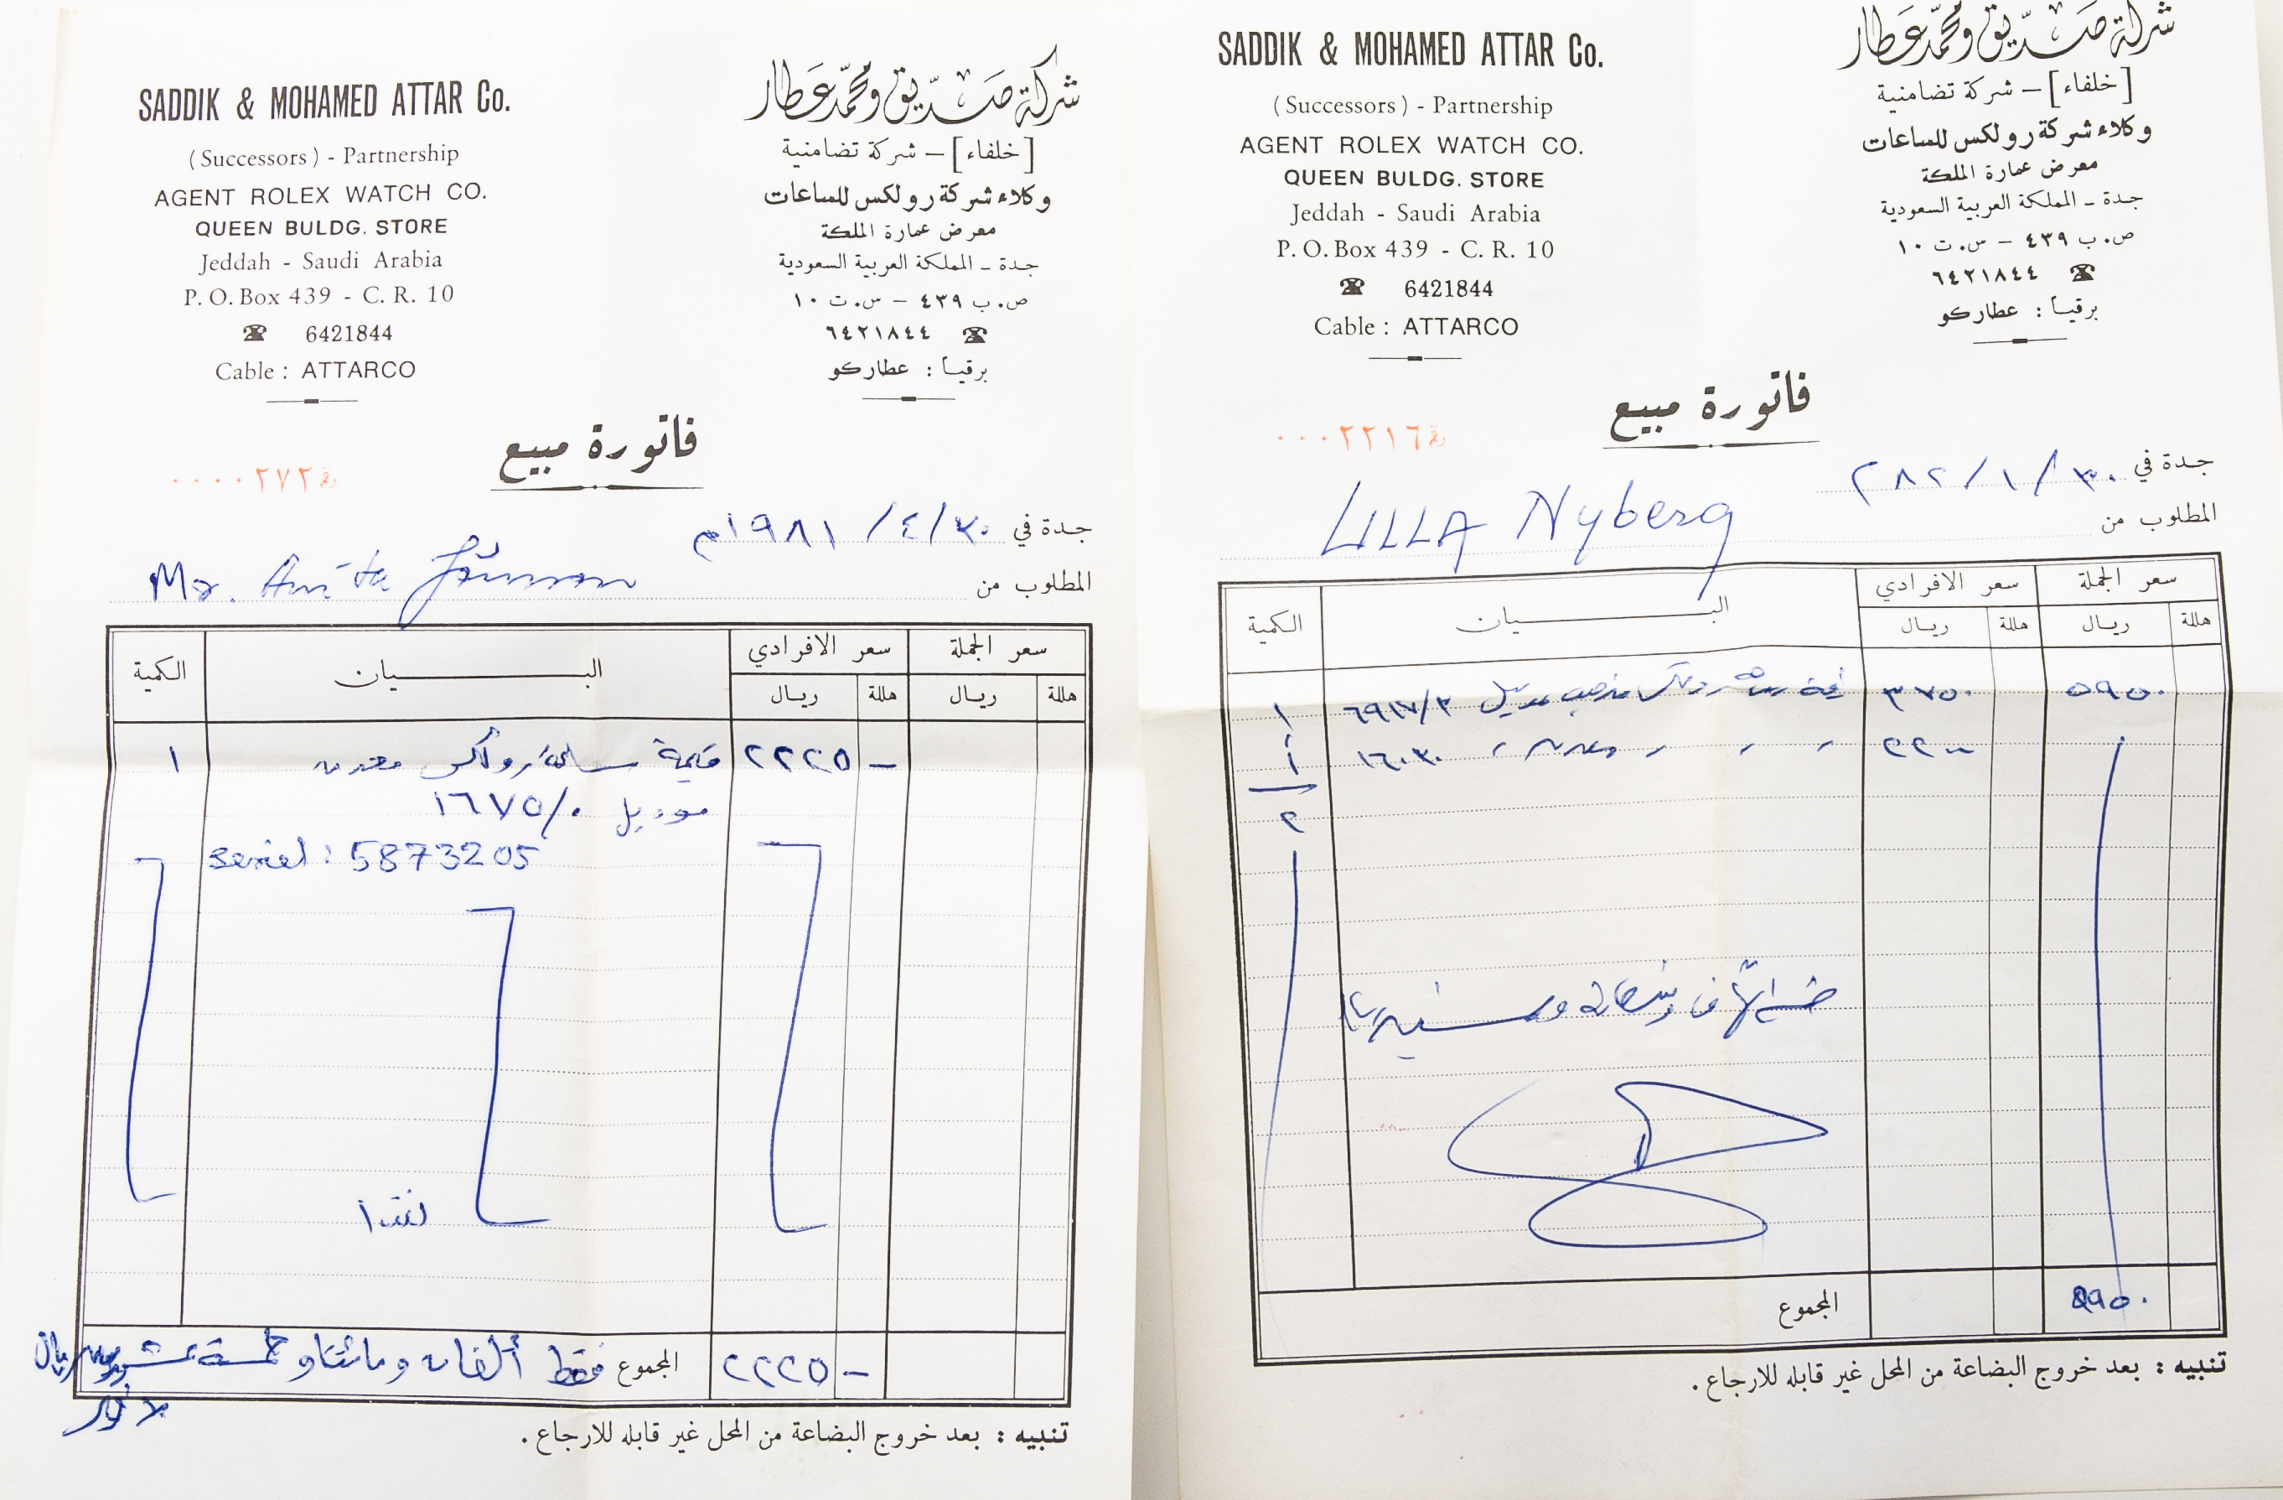 SADDIK & MOHAMED ATTAR Co.
(Successors) - Partnership
AGENT ROLEX WATCH CO.
QUEEN BULDG. STORE
Jeddah - Saudi Arabia
P.O.Box 439 - C.R. 10
☎ 6421844
Cable: ATTARCO
شركة صديق ومحمد عطار
[خلفاء] – شركة تضامنية
وكلاء شركة رولكس للساعات
معرض عمارة الملكة
جدة – المملكة العربية السعودية
ص.ب ٤٣٩ – س.ت ١٠
☎ ٦٤٢١٨٤٤
برقياً : عطاركو
فاتورة مبيع
رقم ٠٠٠٠٢٧٢
جدة في ٣٠/٤/١٩٨١م
المطلوب من Mr. Anita
الكمية البيان سعر الافرادي سعر الجملة
ريال هللة ريال هللة
١ قيمة ساعة رولكس معدن ٢٢٢٥ –
موديل ١٦٧٥/٠
seriel: 5873205
نقدا
المجموع فقط ألفان ومائتان وخمسة عشرون ريال ٢٢٢٥ –
لا غير
تنبيه : بعد خروج البضاعة من المحل غير قابله للارجاع .
SADDIK & MOHAMED ATTAR Co.
(Successors) - Partnership
AGENT ROLEX WATCH CO.
QUEEN BULDG. STORE
Jeddah - Saudi Arabia
P.O.Box 439 - C.R. 10
☎ 6421844
Cable: ATTARCO
شركة صديق ومحمد عطار
[خلفاء] – شركة تضامنية
وكلاء شركة رولكس للساعات
معرض عمارة الملكة
جدة – المملكة العربية السعودية
ص.ب ٤٣٩ – س.ت ١٠
☎ ٦٤٢١٨٤٤
برقياً : عطاركو
فاتورة مبيع
رقم ٠٠٠٢٢١٦
جدة في ٣٠/١/٢٨٢
المطلوب من LILLA Nyberg
الكمية البيان سعر الافرادي سعر الجملة
ريال هللة ريال هللة
١ قيمة ساعة رولكس مذهب موديل ٦٩١٧/٣ ٣٧٥٠ ٥٩٥٠
١ ١٦٠٣٠ ٢٢٠٠
٢
المجموع ٥٩٥٠
تنبيه : بعد خروج البضاعة من المحل غير قابله للارجاع .